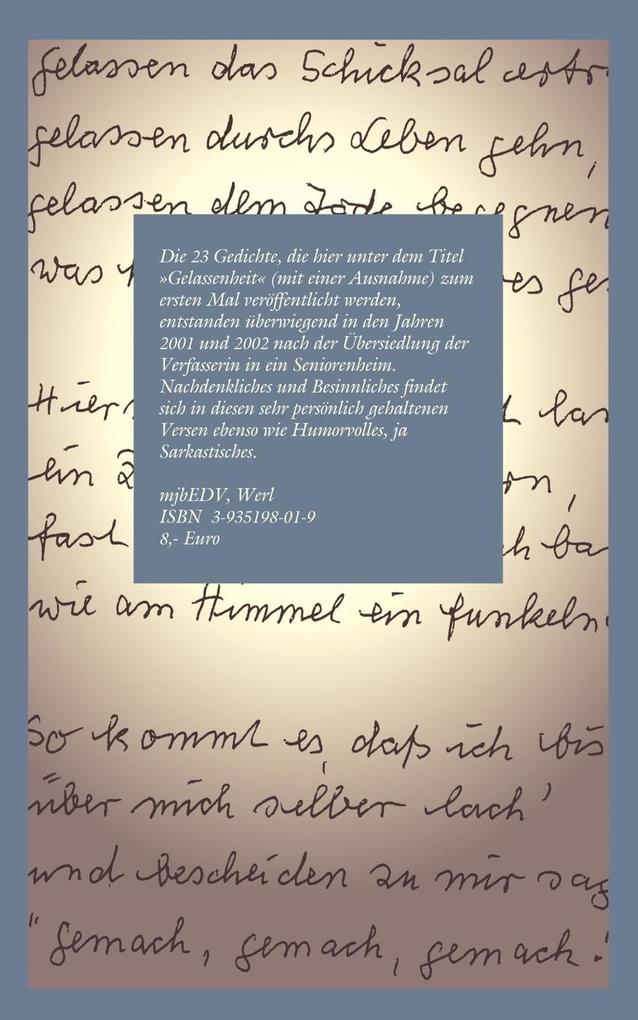 gelassen das Schicksal
gelassen durchs Leben gehn,
gelassen dem Tode begegnen
was
Die 23 Gedichte, die hier unter dem Titel
»Gelassenheit« (mit einer Ausnahme) zum
ersten Mal veröffentlicht werden,
entstanden überwiegend in den Jahren
2001 und 2002 nach der Übersiedlung der
Verfasserin in ein Seniorenheim.
Nachdenkliches und Besinnliches findet
sich in diesen sehr persönlich gehaltenen
Versen ebenso wie Humorvolles, ja
Sarkastisches.
mjbEDV, Werl
ISBN 3-935198-01-9
8,- Euro
ein
fast
wie am Himmel ein funkeln
So kommt es, daß ich bis
über mich selber lach'
und bescheiden zu mir sag
"gemach, gemach, gemach!